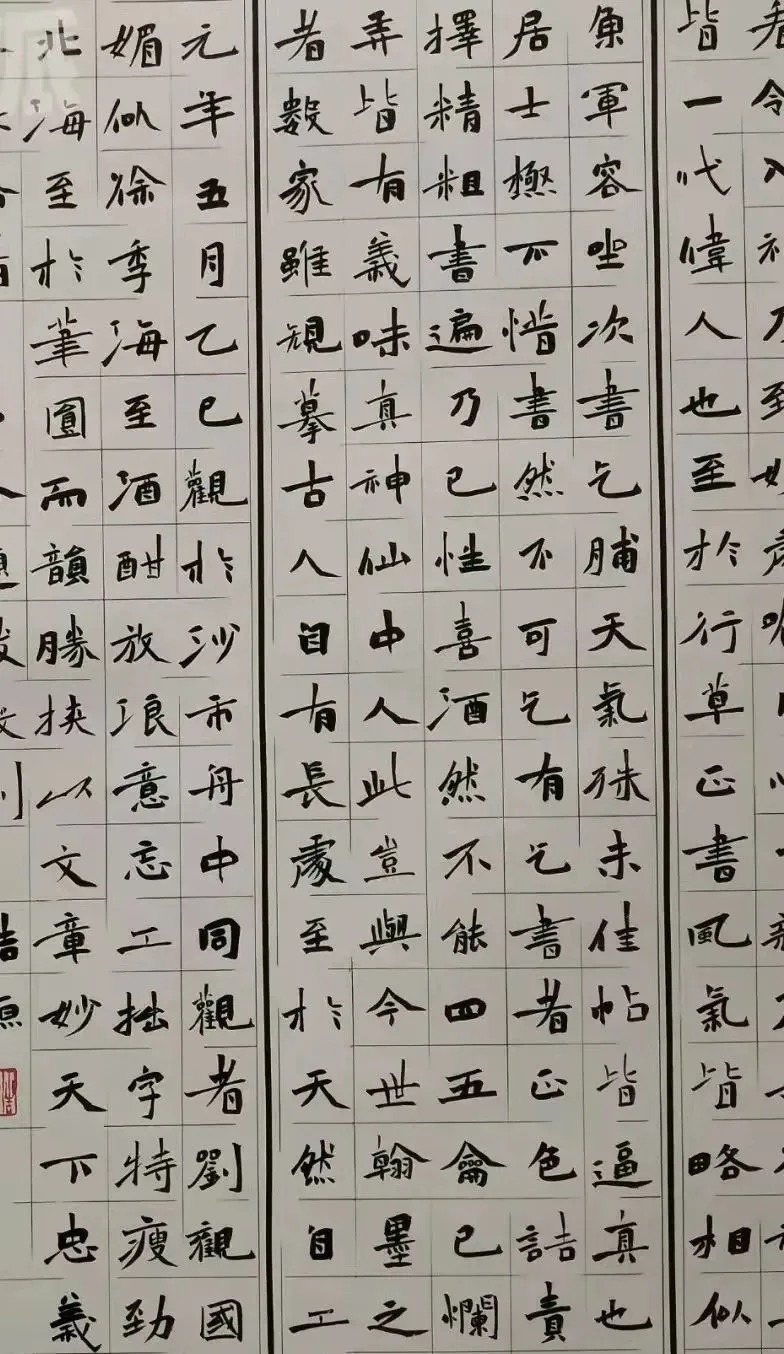 皆一代偉人也至於行草正書風氣皆略相似
魚軍容坐次書乞脯天氣殊未佳帖皆逼真也
居士極不惜書然不可乞有乞書者正色詰責
擇精粗書遍乃已性喜酒然不能四五龠已爛
弄皆有義味真神仙中人此豈與今世翰墨之
者數家雖規摹古人自有長處至於天然自工
元年五月乙巳觀於沙市舟中同觀者劉觀國
媚似徐季海至酒酣放浪意忘工拙字特瘦勁
北海至於筆圓而韻勝挾以文章妙天下忠義